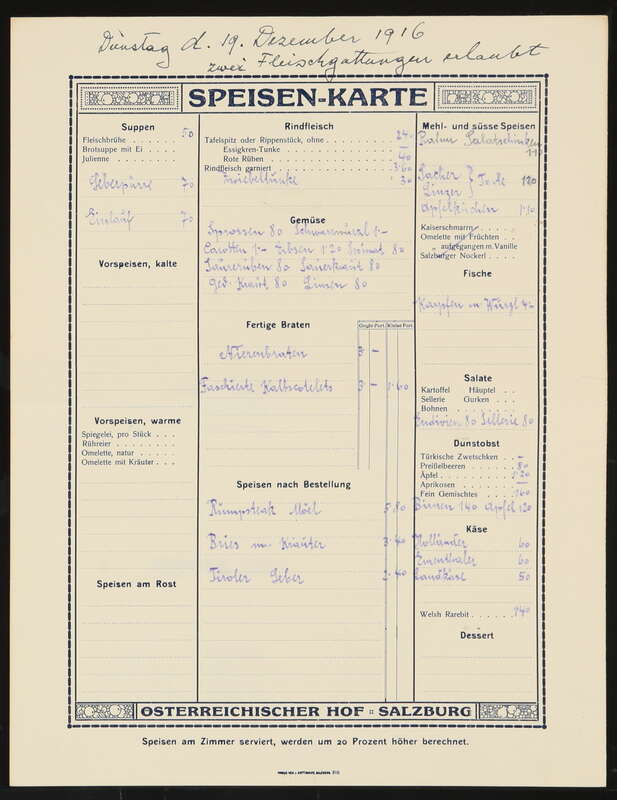 Dienstag d. 19. Dezember 1916
zwei Fleischgattungen erlaubt
SPEISEN-KARTE
Suppen
Fleischbrühe . . . . . 50
Brotsuppe mit Ei . . . .
Julienne . . . . . . .
Leberpüree 70
Einlauf 70
Vorspeisen, kalte
Vorspeisen, warme
Spiegelei, pro Stück . . .
Rühreier . . . . . . . .
Omelette, natur . . . . .
Omelette mit Kräuter . . .
Speisen am Rost
Rindfleisch
Tafelspitz oder Rippenstück, ohne . . . . . . . 24-
Essigkren-Tunke . . . . . —
Rote Rüben . . . . . 40
Rindfleisch garniert . . . . . 3·60
Zwiebeltunke 30
Gemüse
Sprossen 80 Schwarzwurzl 1·-
Carotten 1·- Erbsen 1·20 Spinat 80
Saurerüben 80 Sauerkraut 80
ged. Kraut 80 Linsen 80
Fertige Braten
Große Port. Kleine Port.
Nierenbraten 3 -
Faschierte Kalbscotelets 3 - 1·60
Speisen nach Bestellung
Rumpsteak Möel 5·80
Bries m. Kräuter 3·40
Tiroler Leber 2·40
Mehl- und süsse Speisen
110
Sacher
Linzer } Torte 120
Apfelkuchen 1·10
Kaiserschmarrn . . . . .
Omelette mit Früchten . .
aufgegangen m. Vanille
Salzburger Nockerl . . . .
Fische
Karpfen m Wurzl 4-
Salate
Kartoffel Häuptel . .
Sellerie Gurken . .
Bohnen . . . . . . .
Endivien 80 Sellerie 80
Dunstobst
Türkische Zwetschken . . —
Preißelbeeren . . . . . 80
Äpfel . . . . . . . 1·20
Aprikosen . . . . . . —
Fein Gemischtes . . . . 160
Birnen 140 Apfel 120
Käse
Holländer 60
Ementhaler 60
Landkäse 50
Welsh Rarebit . . . . . 140
Dessert
ÖSTERREICHISCHER HOF :: SALZBURG
Speisen am Zimmer serviert, werden um 20 Prozent höher berechnet.